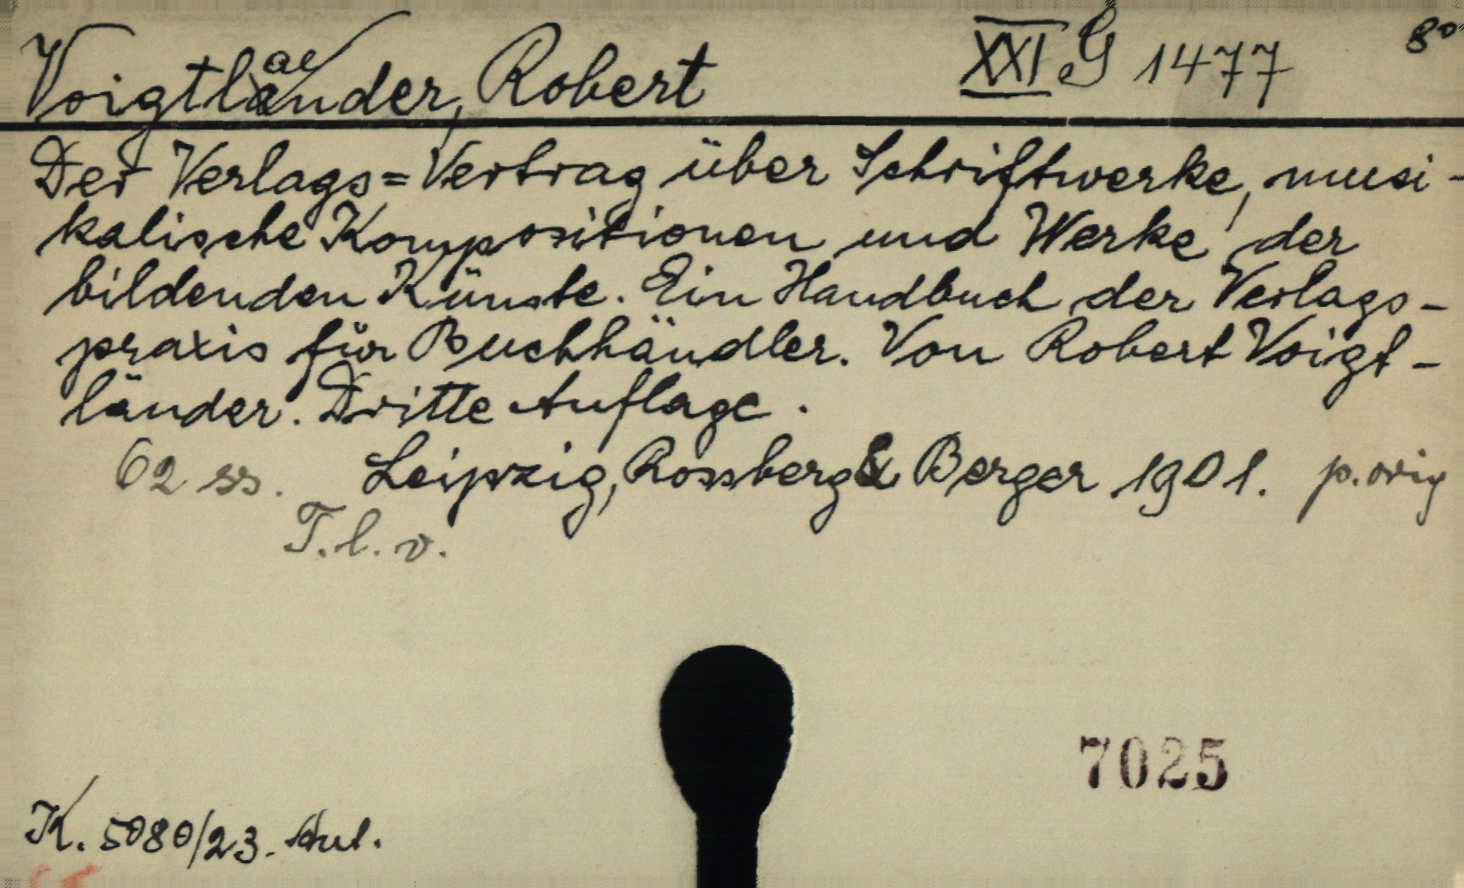 Voigtlaender, Robert XXI G 1477 8°
Der Verlags=Vertrag über Schriftwerke, musi-
kalische Kompositionen und Werke der
bildenden Künste. Ein Handbuch der Verlags-
praxis für Buchhändler. Von Robert Voigt-
länder. Dritte Auflage.
62 ss. Leipzig, Rossberg & Berger 1901. p. orig
T. l. v.
7025
K. 5080/23.